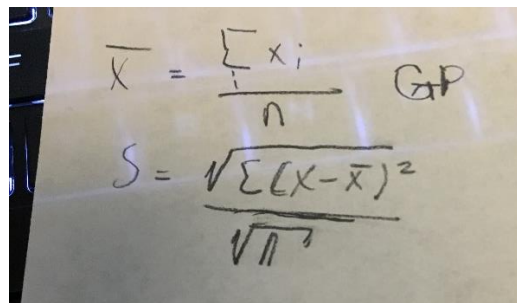 x̄ = Σᵢ xᵢ / n GP
S = √Σ(x-x̄)² / √n